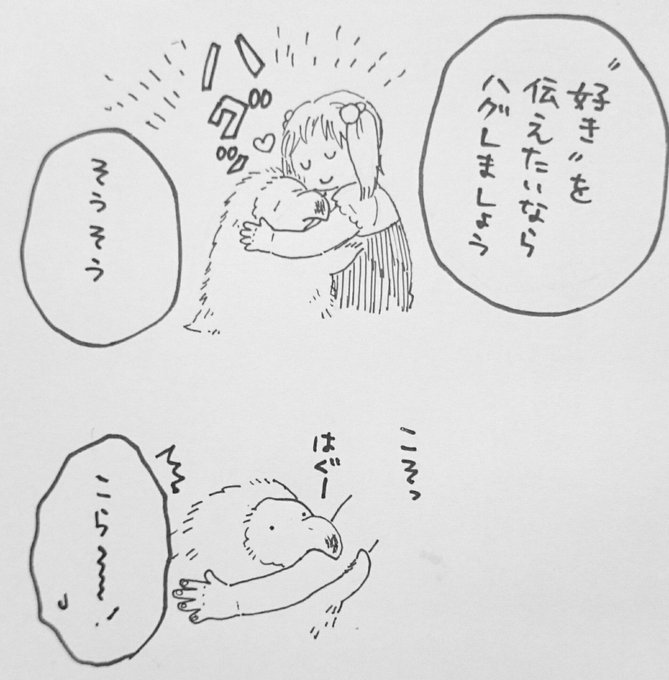 “好き”を
伝えたいなら
ハグしましょう
ハグッ
そうそう
こそっ
はぐー
こら〜〜!